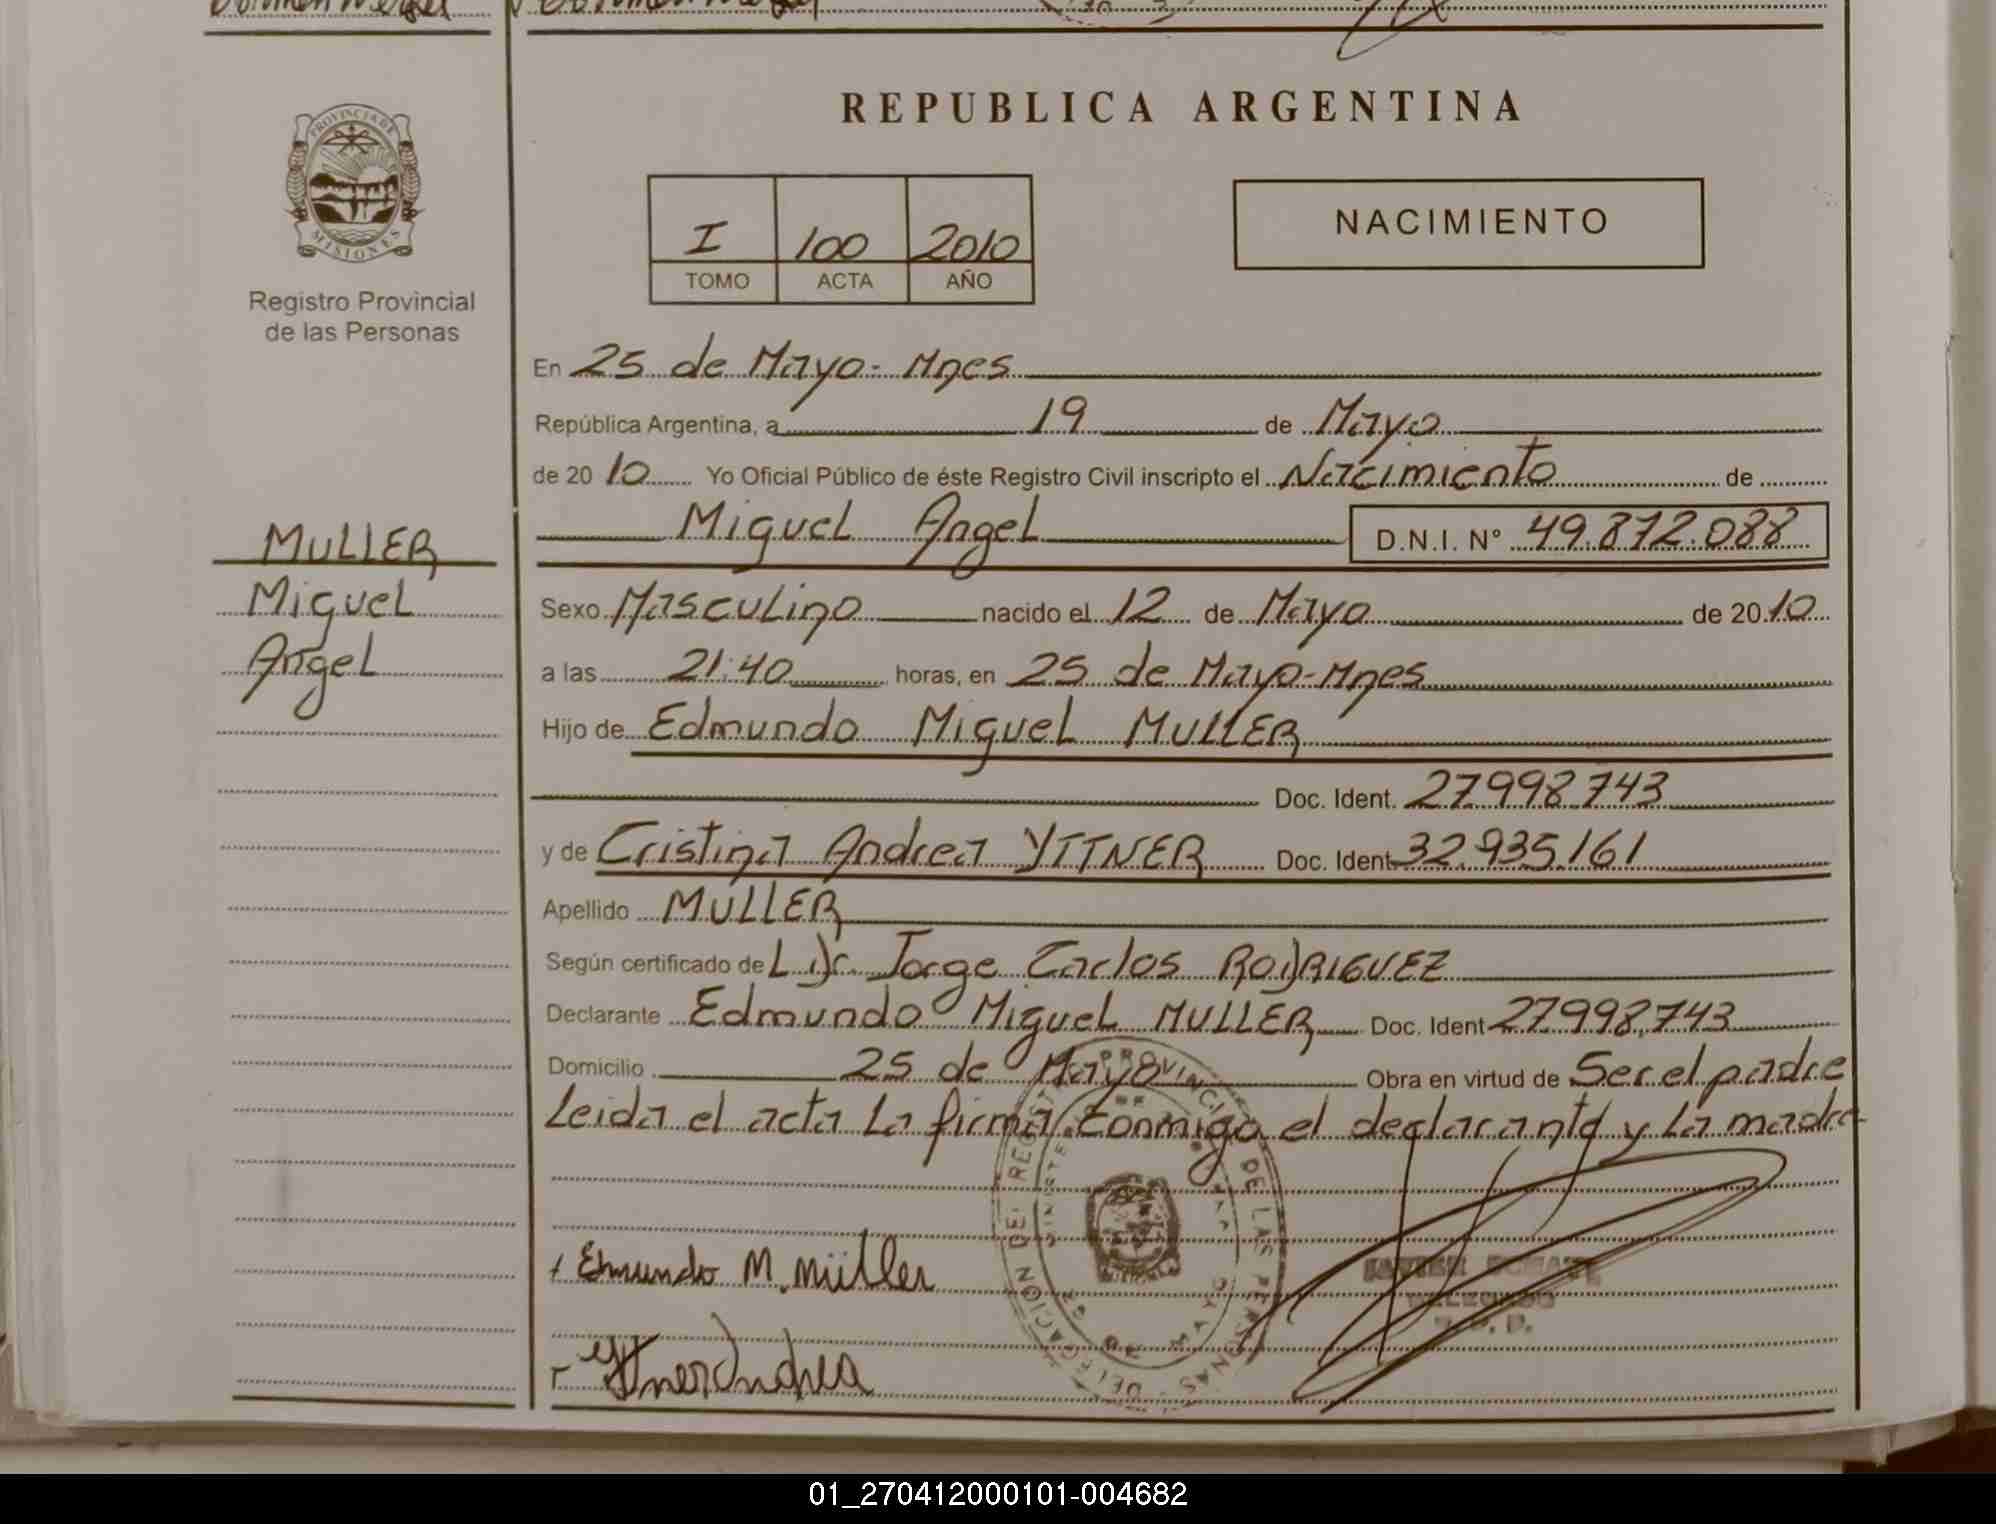 REPUBLICA ARGENTINA
PROVINCIA DE
MISIONES
Registro Provincial
de las Personas
I 100 2010
TOMO ACTA AÑO
NACIMIENTO
MULLER
Miguel
Angel
En 25 de Mayo- Mnes
República Argentina, a 19 de Mayo
de 20 10 Yo Oficial Público de éste Registro Civil inscripto el Nacimiento de
Miguel Angel D.N.I. N° 49.872.088
Sexo Masculino nacido el 12 de Mayo de 20 10
a las 21:40 horas, en 25 de Mayo-Mnes
Hijo de Edmundo Miguel MULLER
Doc. Ident. 27998743
y de Cristina Andrea YTTNER Doc. Ident 32.935.161
Apellido MULLER
Según certificado de L Dr. Jorge Carlos RODRIGUEZ
Declarante Edmundo Miguel MULLER Doc. Ident 27998.743
Domicilio 25 de Mayo Obra en virtud de Ser el padre
Leida el acta La firma Conmigo el declarante y La madre
Edmundo M. müller
Yttner Andrea
DELEGACION DEL REGISTRO PROVINCIAL DE LAS PERSONAS
25 DE MAYO
JAVIER
DELEGADO
01_270412000101-004682